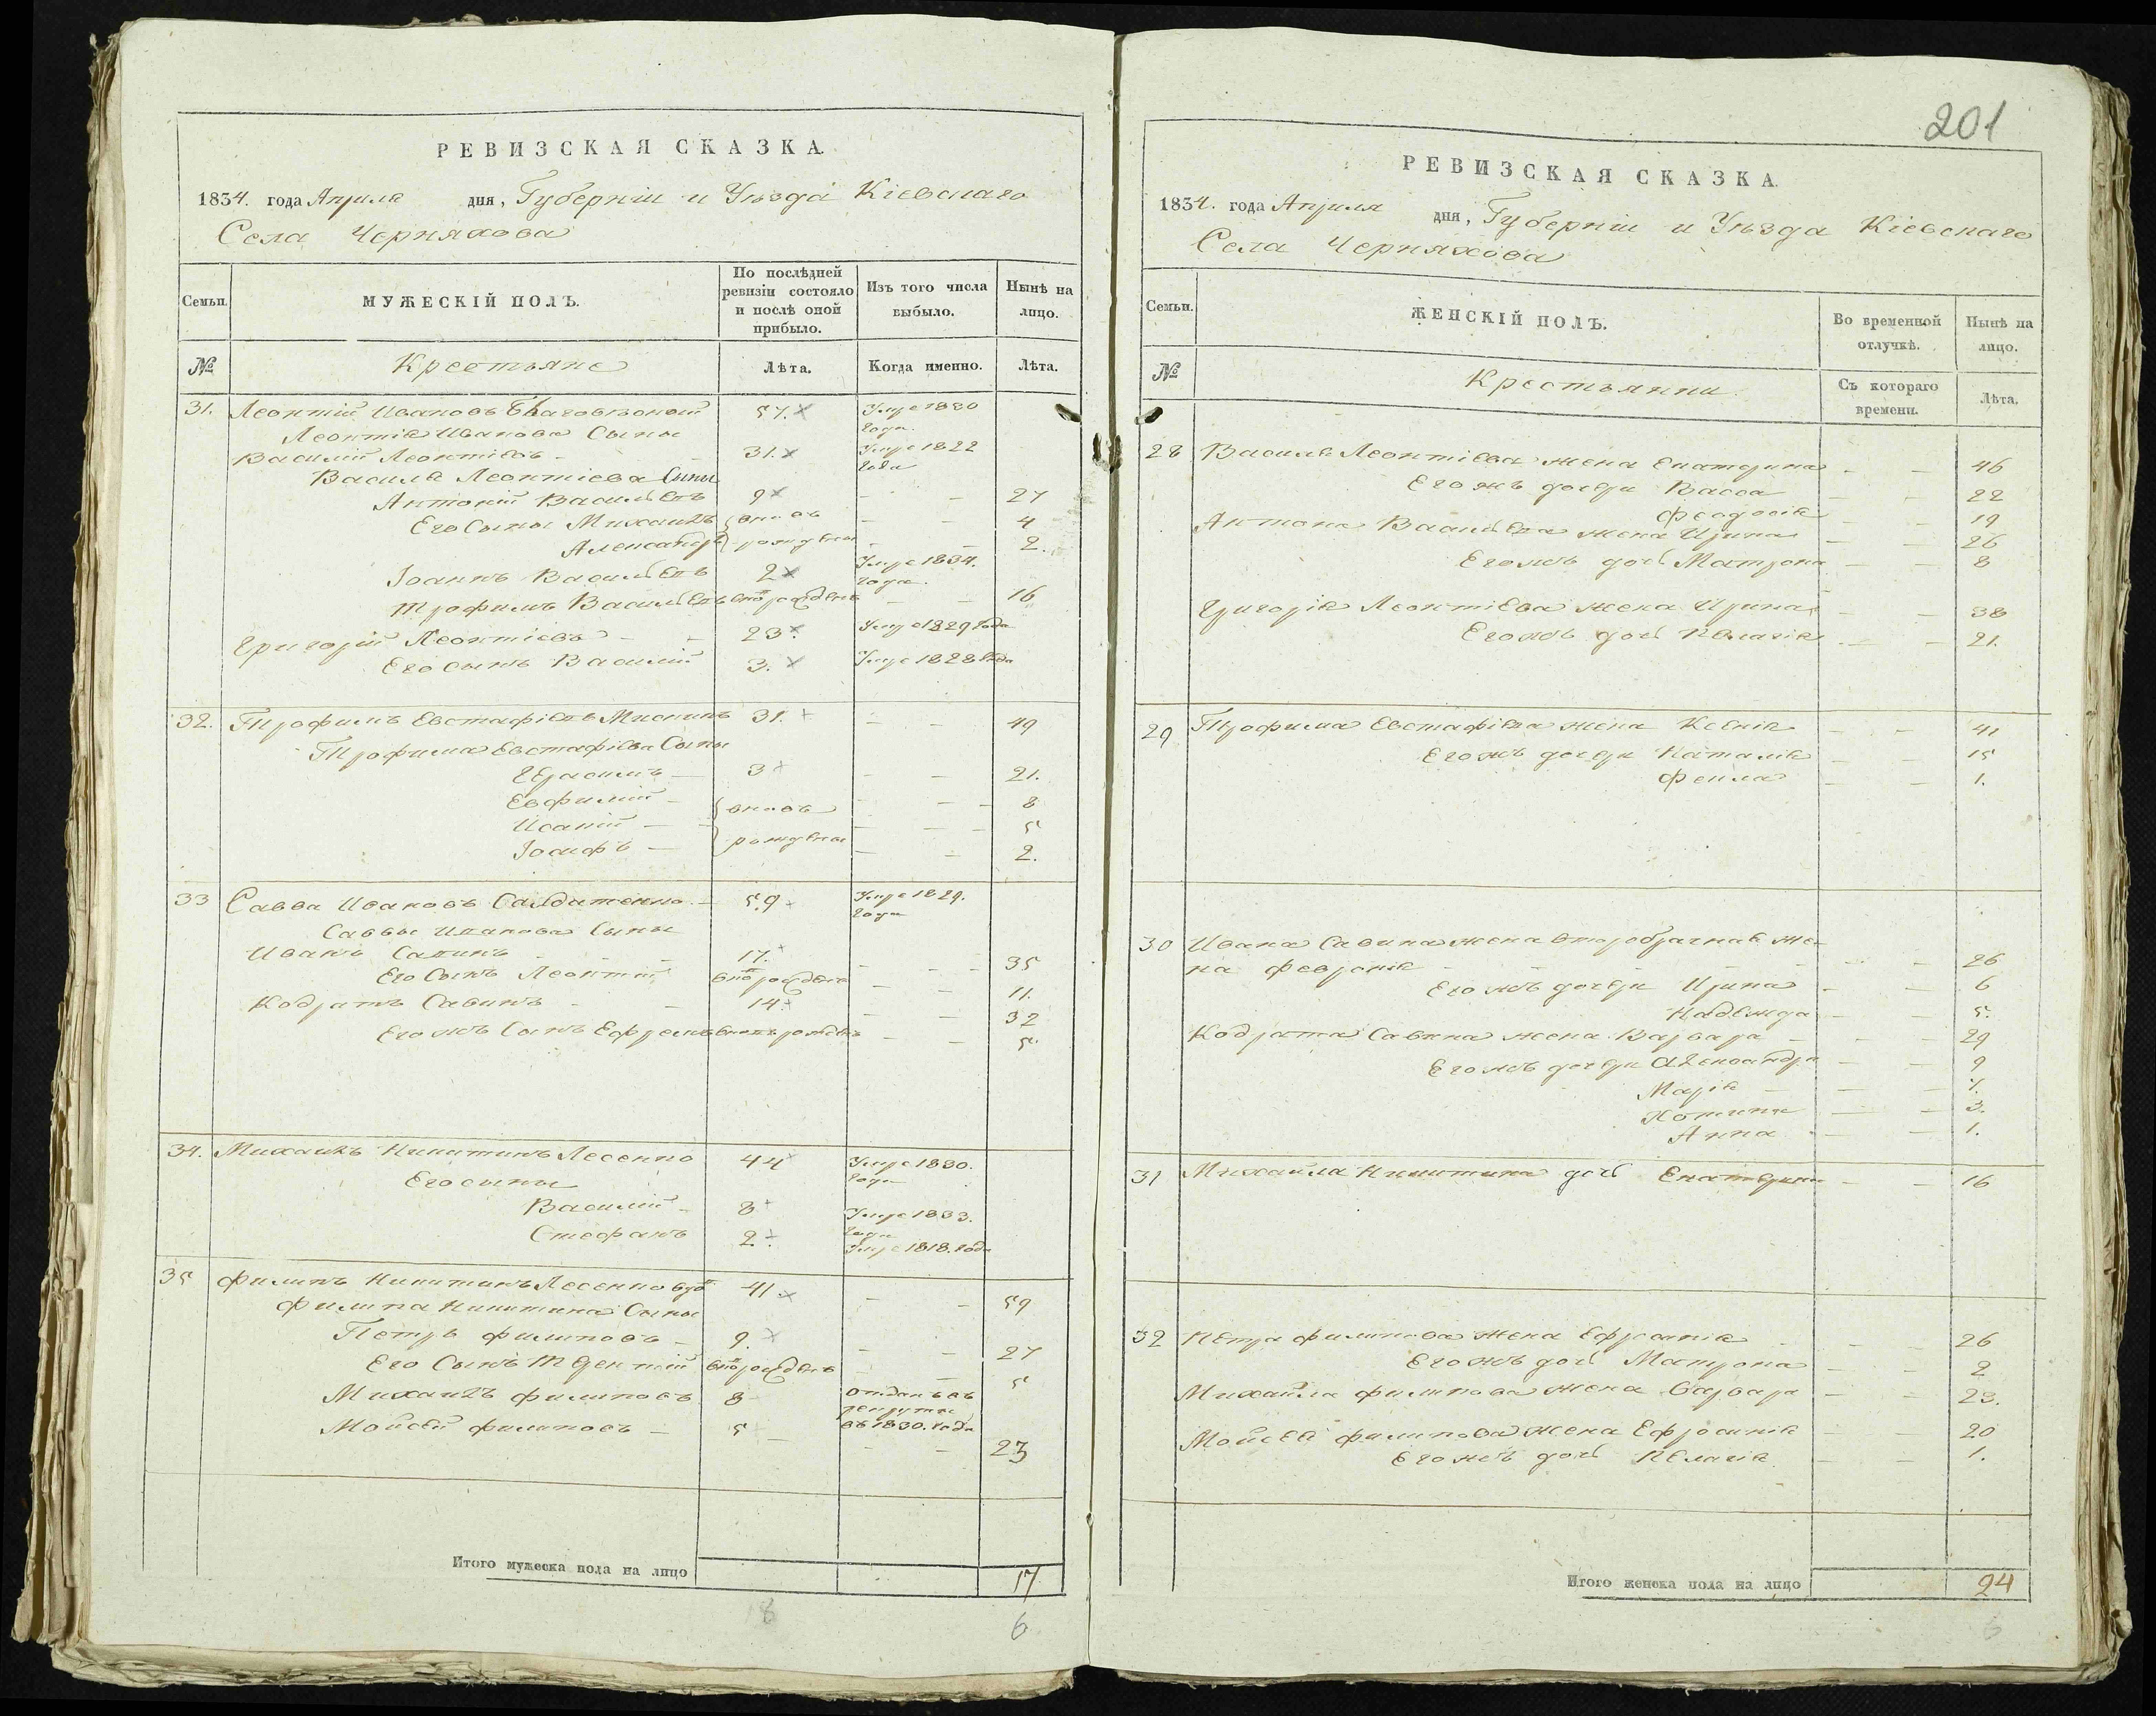 РЕВИЗСКАЯ СКАЗКА.
1834. года Апреля дня, Губерніи и Уѣзда Кіевскаго
Села Черняхова
Семьи.
МУЖЕСКІЙ ПОЛЪ.
По послѣдней ревизіи состояло и послѣ оной прибыло.
Изъ того числа выбыло.
Нынѣ на лицо.
№
Крестьяне
Лѣта.
Когда именно.
Лѣта.
31. Леонтій Ивановъ 57. Умре 1820 года.
Леонтія Иванова Сыны
Василій Леонтіевъ - 31. Умре 1822 года
Василя Леонтіева Сыны
Антоній Васильевъ 9 - - 27
Его Сыны Михаилъ вновь - - 4
Александръ рожденны - - 2.
Іоаннъ Васильевъ 2 Умре 1834. года.
Трофимъ Васильевъ вновь рожденъ - - 16
Григорій Леонтіевъ - - 23. Умре 1829 года
Его сынъ Василій 3. Умре 1828 года
32. Трофимъ Евстафіевъ 31. - - 49
Трофима Евстафіева Сыны
Герасимъ - 3 - - 21.
Евфимій - вновь - - 8
Исакій - рожденны - - 5
Іосифъ - - - 2.
33 Савва Ивановъ Салдатенко - 59 Умре 1829. года
Саввы Иванова Сыны
Иванъ Савинъ - - 17. - - 35
Его Сынъ Леонтій вновь рожденъ - - 11.
Кодратъ Савинъ - - 14. - - 32
Его жъ Сынъ Ефремъ вновь рожденъ - - 5.
34. Михаилъ Никитинъ Лесенко 44 Умре 1830. года
Его сыны
Василій - 8 Умре 1833. года
Стефанъ 2. Умре 1818. года
35 Филипъ Никитинъ Лесенко 41 - - 59
Филипа Никитина Сыны
Петръ Филиповъ - 9. - - 27
Его Сынъ Терентій вновь рожденъ - - 5
Михаилъ Филиповъ 8 отданъ въ рекруты въ 1830. года
Мойсей Филиповъ - 5 - - 23
Итого мужеска пола на лицо 17
18
6
201
РЕВИЗСКАЯ СКАЗКА.
1834. года Апреля дня, Губерніи и Уѣзда Кіевскаго
Села Черняхова
Семьи.
ЖЕНСКІЙ ПОЛЪ.
Во временной отлучкѣ.
Нынѣ на лицо.
№
Крестьянки
Съ котораго времени.
Лѣта.
28 Василя Леонтіева жена Екатерина - - 46
Его жъ дочери Васса - - 22
Феодосія - - 19
Антона Васильева жена Ирина - - 26
Его жъ дочь Матрона - - 8
Григорія Леонтіева жена Ирина - - 38
Его жъ дочь Пелагія - - 21.
29 Трофима Евстафіева жена Ксенія - - 41
Его жъ дочери Наталія - - 15
Фекла - - 1.
30 Ивана Савина жена второбрачная же-
на Февронія - - 26
Его жъ дочери Ирина - - 6
Надежда - - 5.
Кодрата Савина жена Варвара - - 29
Его жъ дочери Александра - - 9
Марія - - 7.
- - 3.
Анна - - 1.
31 Михайла Никитина дочь Екатерина - - 16
32 Петра Филипова жена Ефросинія - - 26
Его жъ дочь Матрона - - 2
Михайла Филипова жена Варвара - - 23.
Мойсея Филипова жена Ефросинія - - 20
Его жъ дочь Пелагія - - 1.
Итого женска пола на лицо 24
6